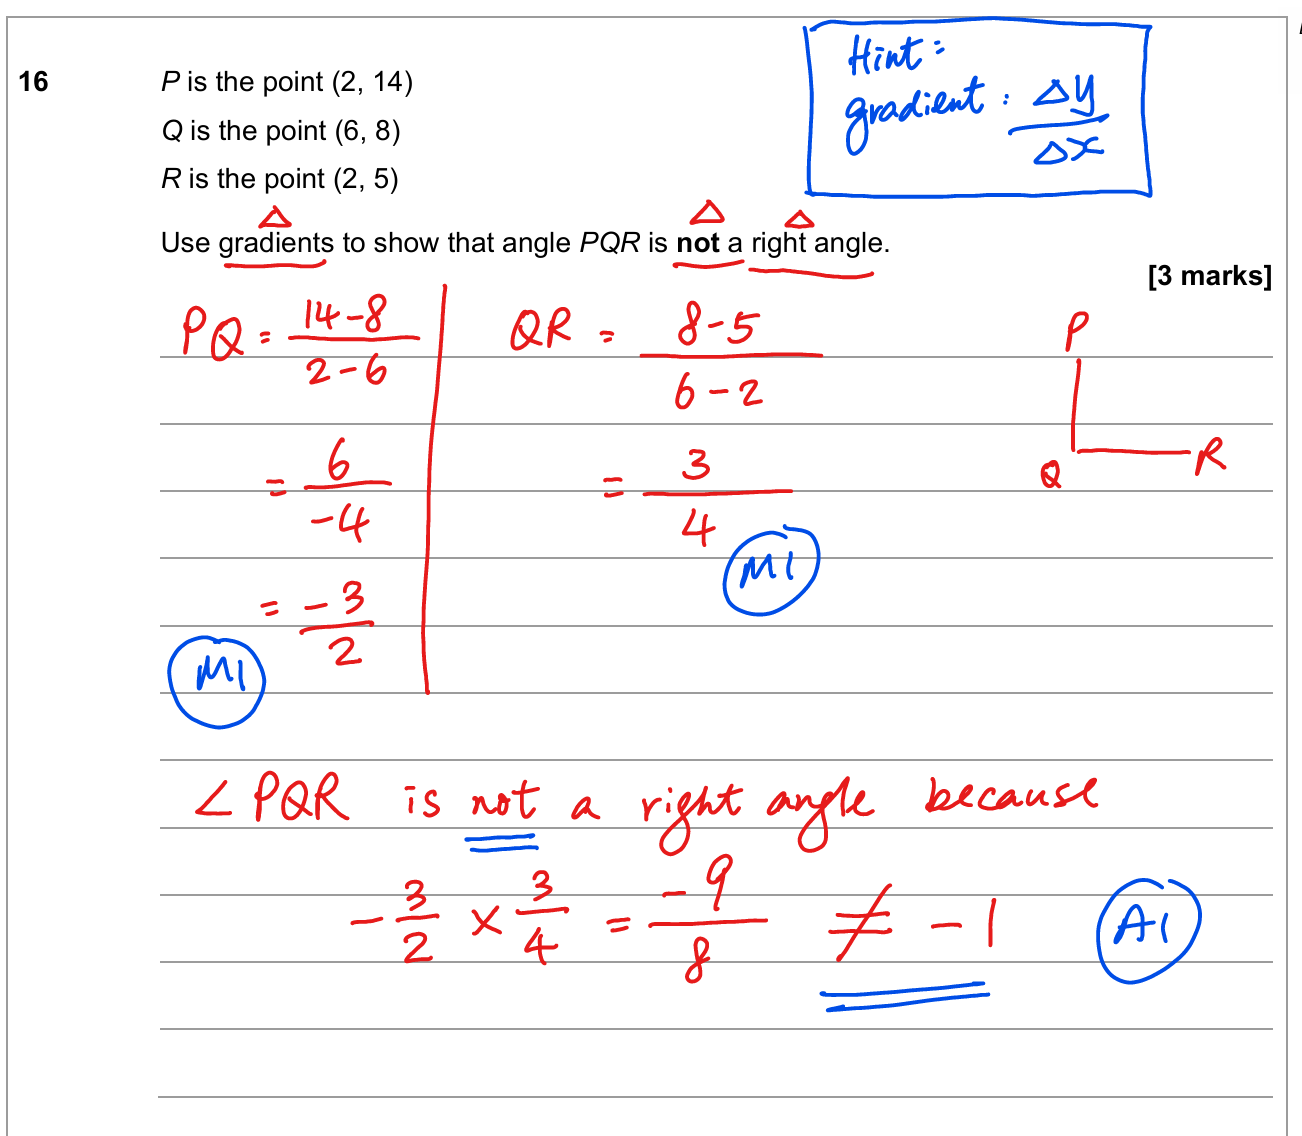 16
P is the point (2, 14)
Q is the point (6, 8)
R is the point (2, 5)
Hint:
gradient: Δy / Δx
Use gradients to show that angle PQR is not a right angle.
[3 marks]
PQ = 14-8 / 2-6
= 6 / -4
= -3 / 2
M1
QR = 8-5 / 6-2
= 3 / 4
M1
P
Q
R
∠PQR is not a right angle because
-3/2 × 3/4 = -9/8 ≠ -1
A1